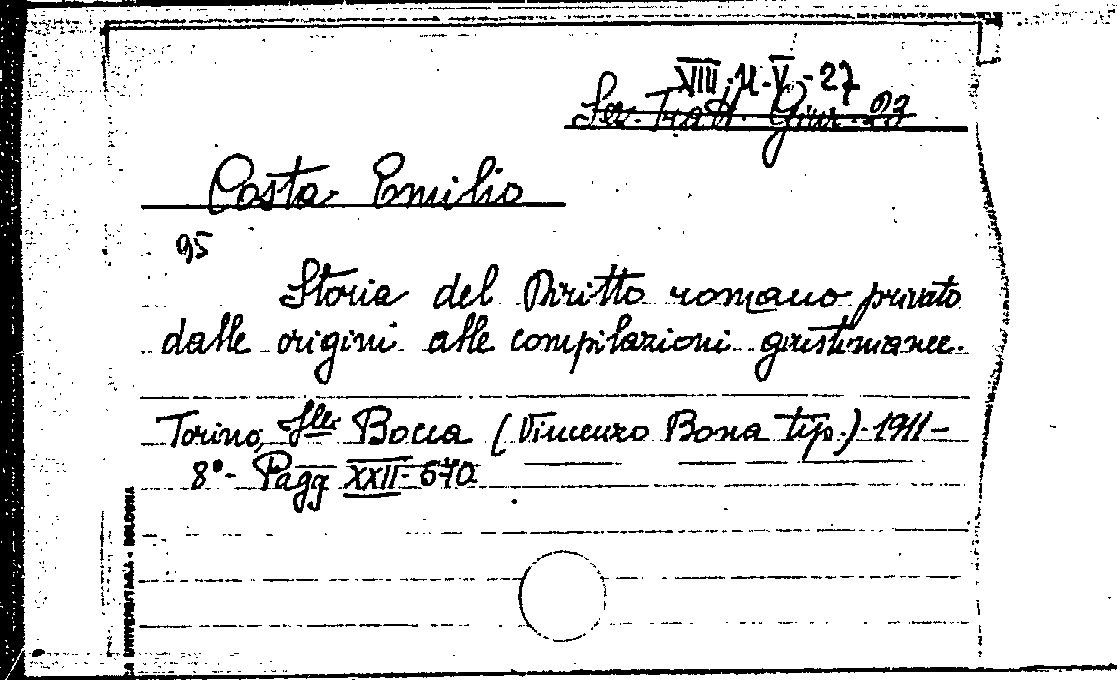 VIII. M. V. - 27
Ser. Tratt. Giur. 27
Costa Emilio
95
Storia del Diritto romano privato
dalle origini alle compilazioni giustinianee.
Torino, F.lli Bocca (Vincenzo Bona tip.) - 1911 -
8°- Pagg XXII - 670
UNIVERSITARIA - BOLOGNA